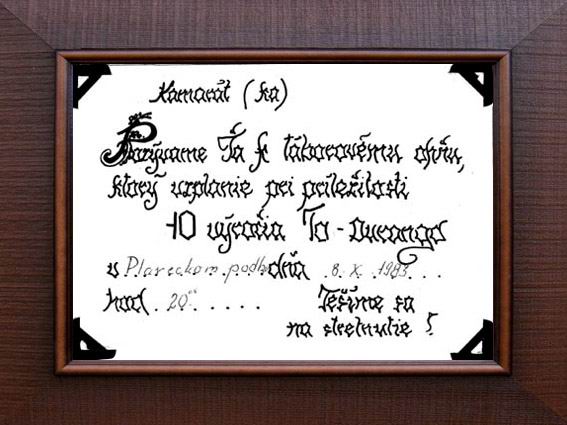 Kamarát (ka)
Pozývame Ťa k táborovému ohňu,
ktorý vzplanie pri príležitosti
10 výročia To - Durango
v Plaveckom podhr. dňa 8. X. 1983
hod. 20⁰⁰
Tešíme sa
na stretnutie !